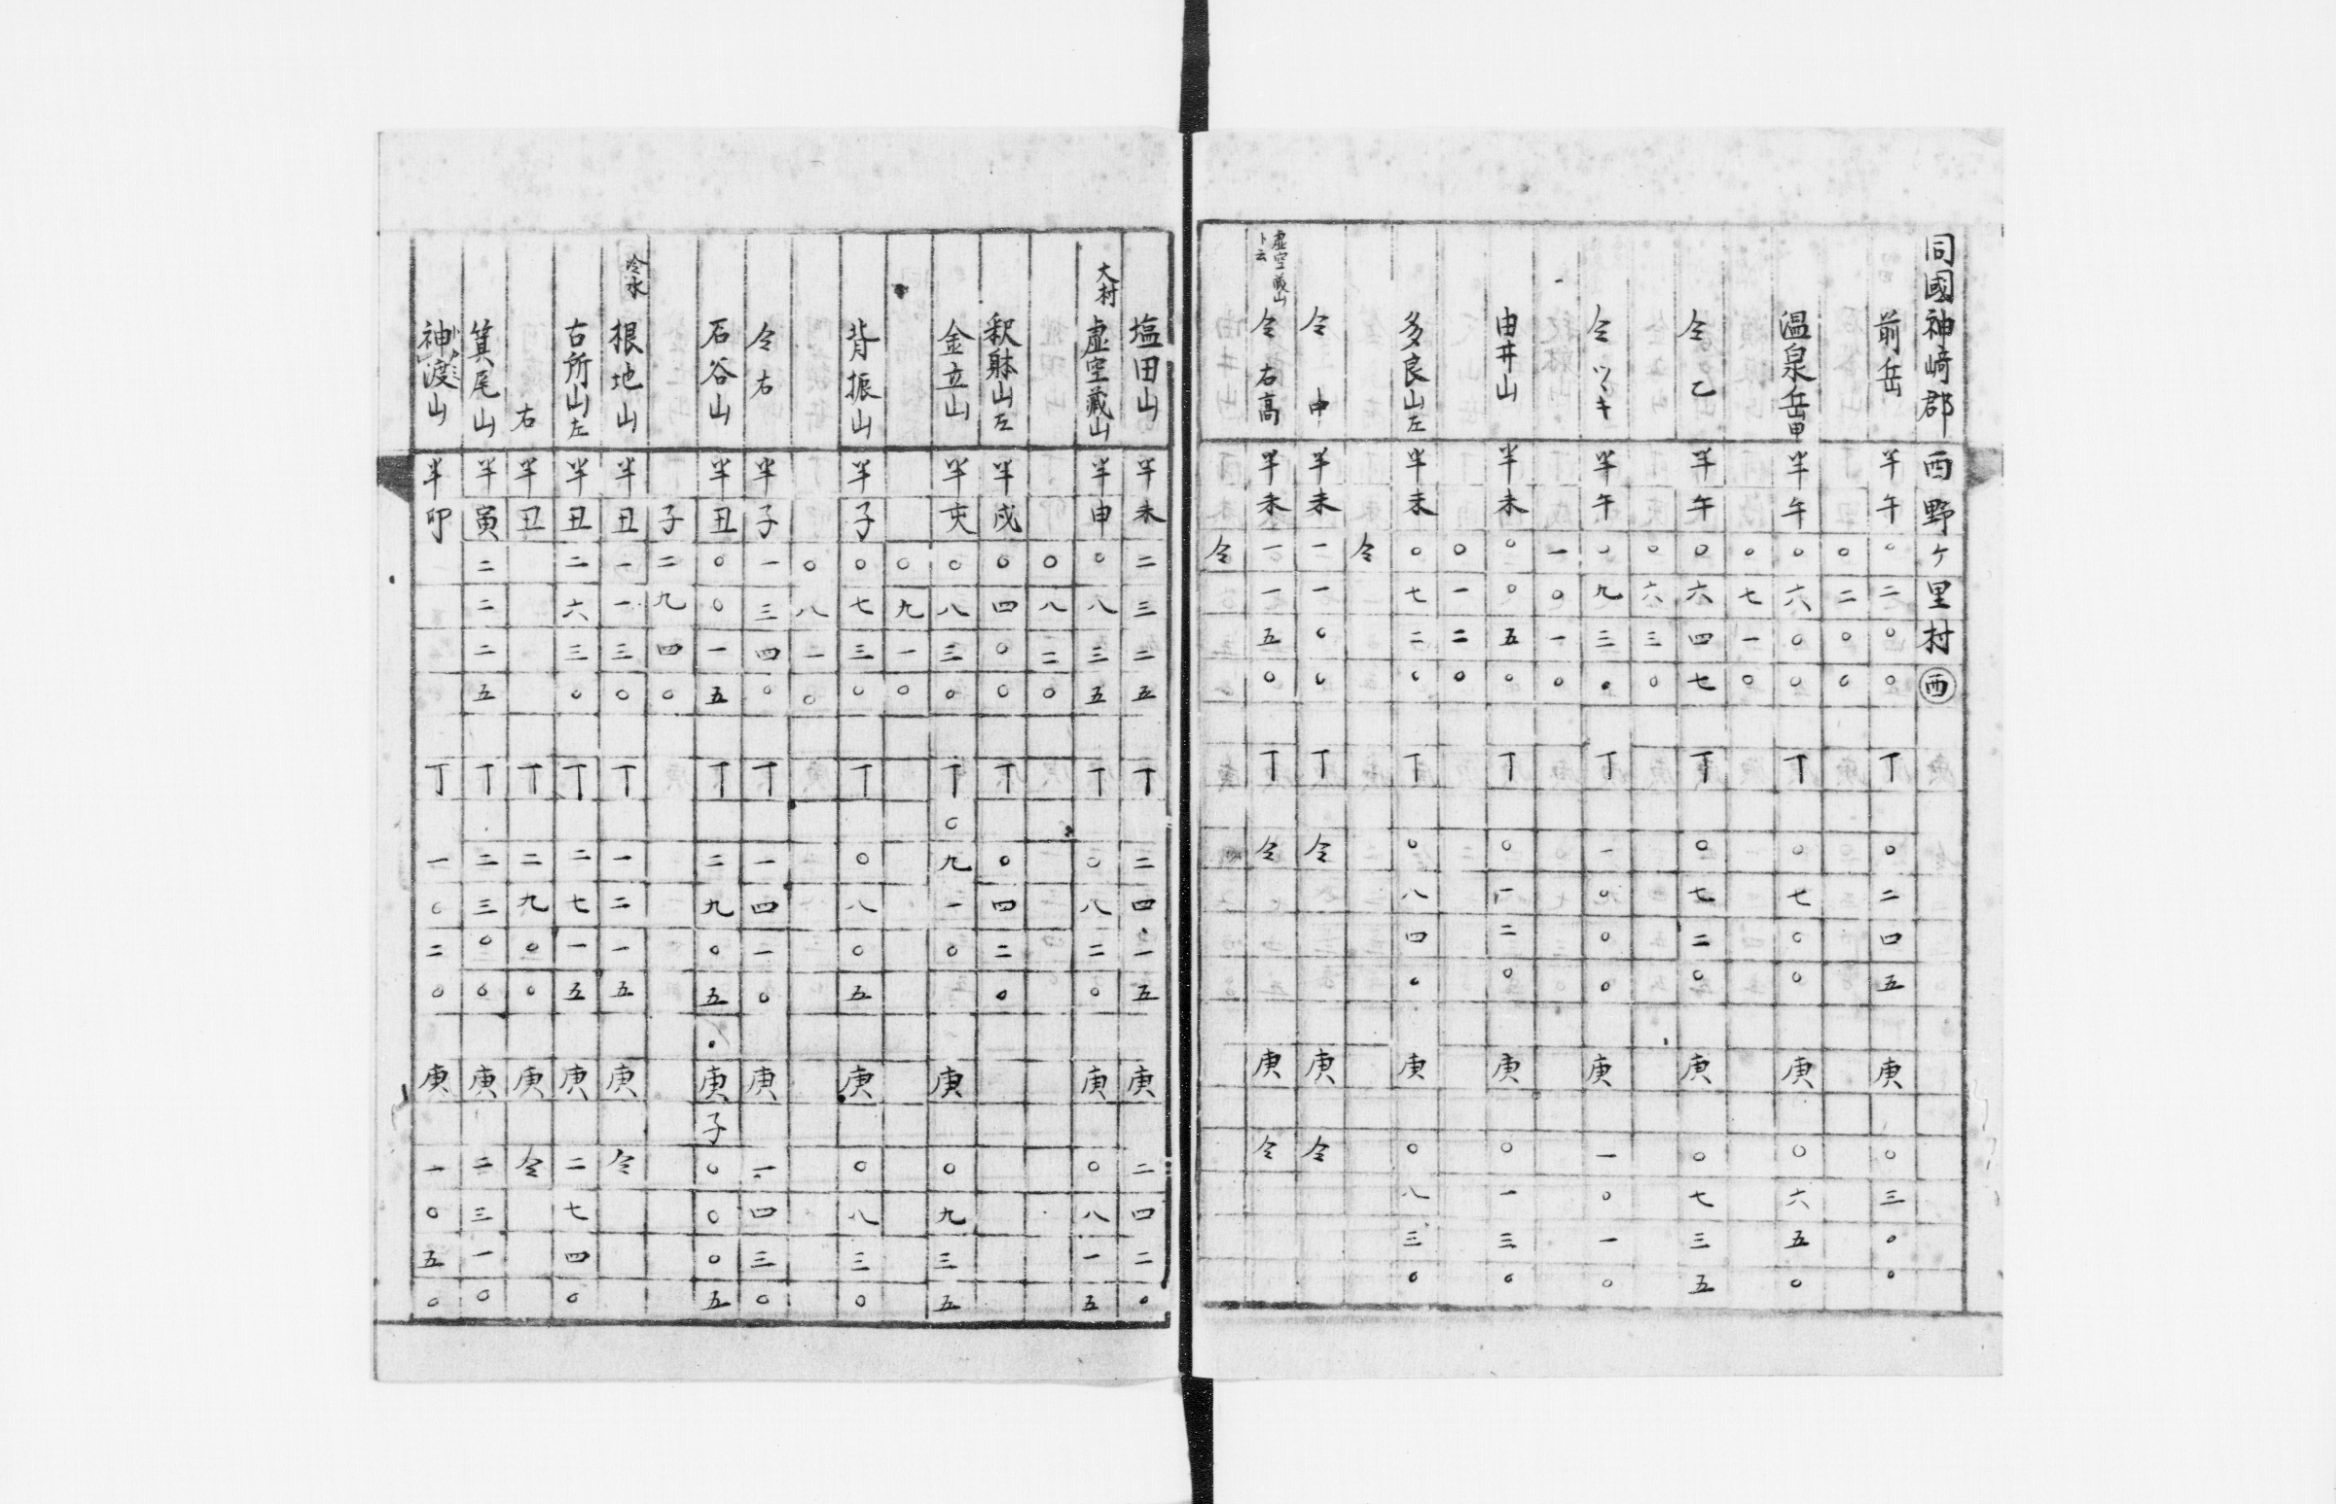 同國神﨑郡西野ヶ里村㊄西
前岳 半午〇二〇〇 丁〇二四五 庚〇三〇〇
〇二〇〇
温泉岳甲 半午〇六〇〇 丁〇七〇〇 庚〇六五〇
〇七一〇
仝乙 半午〇六四七 丁〇七二〇 庚〇七三五
〇六三〇
仝ツヽキ 半午〇九三〇 丁一〇〇〇 庚一〇一〇
一〇一〇
由井山 半未〇〇五〇 丁〇一二〇 庚〇一三〇
〇一二〇
多良山左 半未〇七二〇 丁〇八四〇 庚〇八三〇
仝
仝中 半未一一〇〇 丁仝 庚仝
虚空蔵山ト云 仝右高 半未一一五〇 丁仝 庚仝
仝
塩田山 半未二三二五 丁二四一五 庚二四二〇
大村 虚空蔵山 半申〇八三五 丁〇八二〇 庚〇八一五
〇八二〇
釈躰山左 半戌〇四〇〇 丁〇四二〇
金立山 半亥〇八三〇 丁〇九一〇 庚〇九三五
〇九一〇
背振山 半子〇七三〇 丁〇八〇五 庚〇八三〇
〇八二〇
仝右 半子一三四〇 丁一四一〇 庚一四三〇
石谷山 半丑〇〇一五 丁二九〇五 庚子〇〇〇五
子二九四〇
冷水 根地山 半丑一一三〇 丁一二一五 庚仝
古所山左 半丑二六三〇 丁二七一五 庚二七四〇
右 半丑 丁二九〇〇 庚仝
箕尾山 半寅二二二五 丁二三〇〇 庚二三一〇
神渡山 半卯 丁一〇二〇 庚一〇五〇